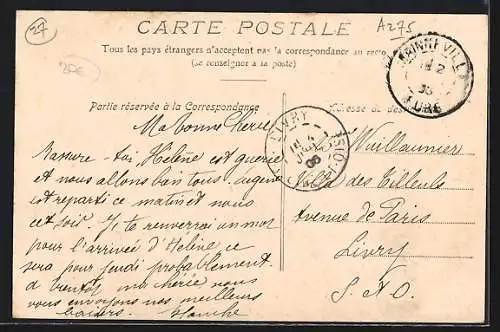 27
A275
20€
CARTE POSTALE
Tous les pays étrangers n'acceptent pas la correspondance au recto
(se renseigner à la poste)
Partie réservée à la Correspondance
Adresse du
Ma bonne Chérie
Rassure-toi, Hélène est guérie
et nous allons bien tous. Eugène
est reparti ce matin et nous
cet soir. Je te renverrai un mot
pour l'arrivée d'Hélène ce
sera pour jeudi probablement.
à bientôt, ma chérie nous
vous envoyons nos meilleurs
baisers. Blanche
Vuillaumier
Villa des Tilleuls
Avenue de Paris
Livry
S. & O.
LIVRY
EURE